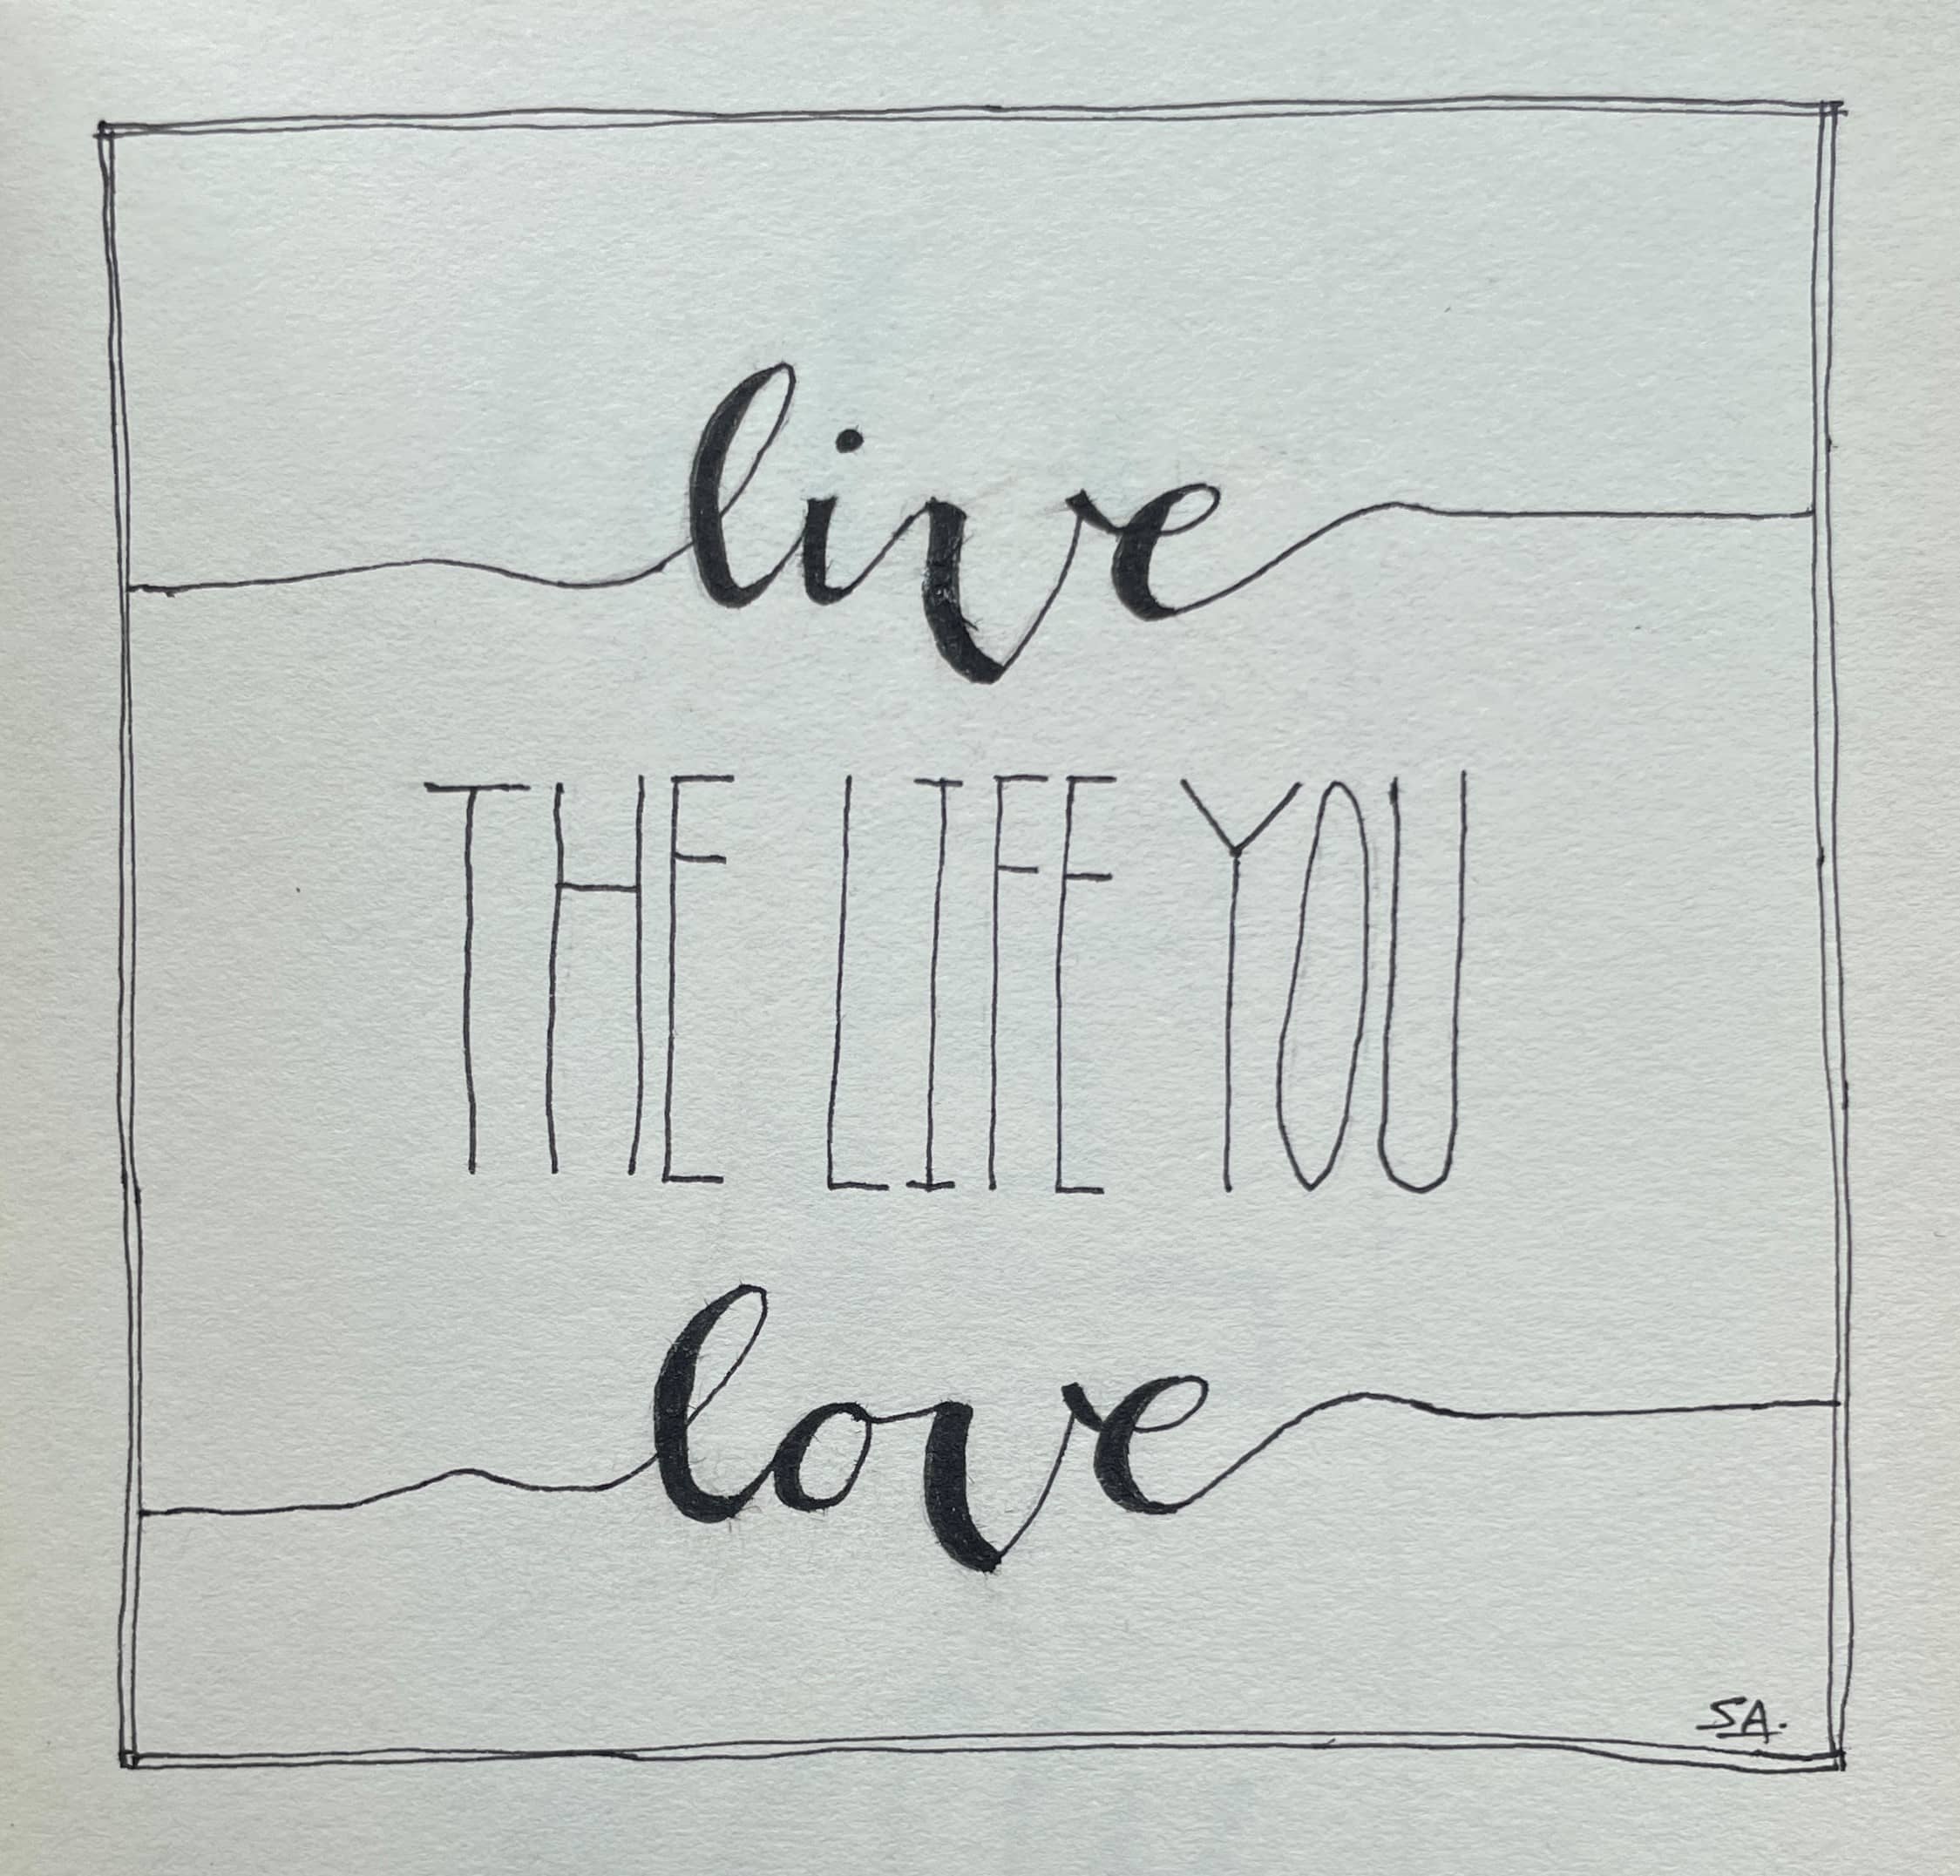 live
THE LIFE YOU
love
SA.